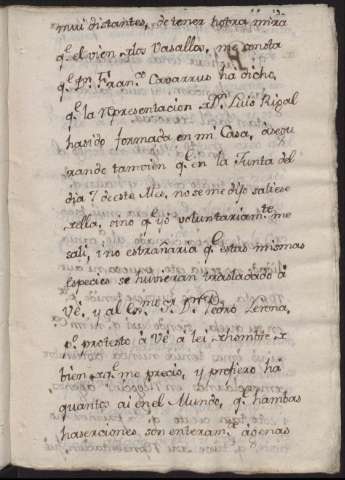 mui distantes, de tener hotra mira
q.e el vien de los Vasallos, me consta
q.e D.n Fran.co Cavarrus ha dicho,
q.e la Rpresentacion de D.n Luis Rigal
hasido formada en mi Casa, asegu
rando tamvien q.e en la Junta del
dia 7 de este Mes, no se me dijo saliese
de ella, sino q.e yo voluntariam.te me
sali, i no estrañaria q.e estas mismas
especies se huvieran trasladado à
VE, y al Y.mo S.r D.n Pedro Lerena,
p.o protesto à VE à lei de hombre de
bien de q.e me precio, y prefiero ha
quantos ai en el Mundo, q.e hambas
haserciones son enteram.te agenas